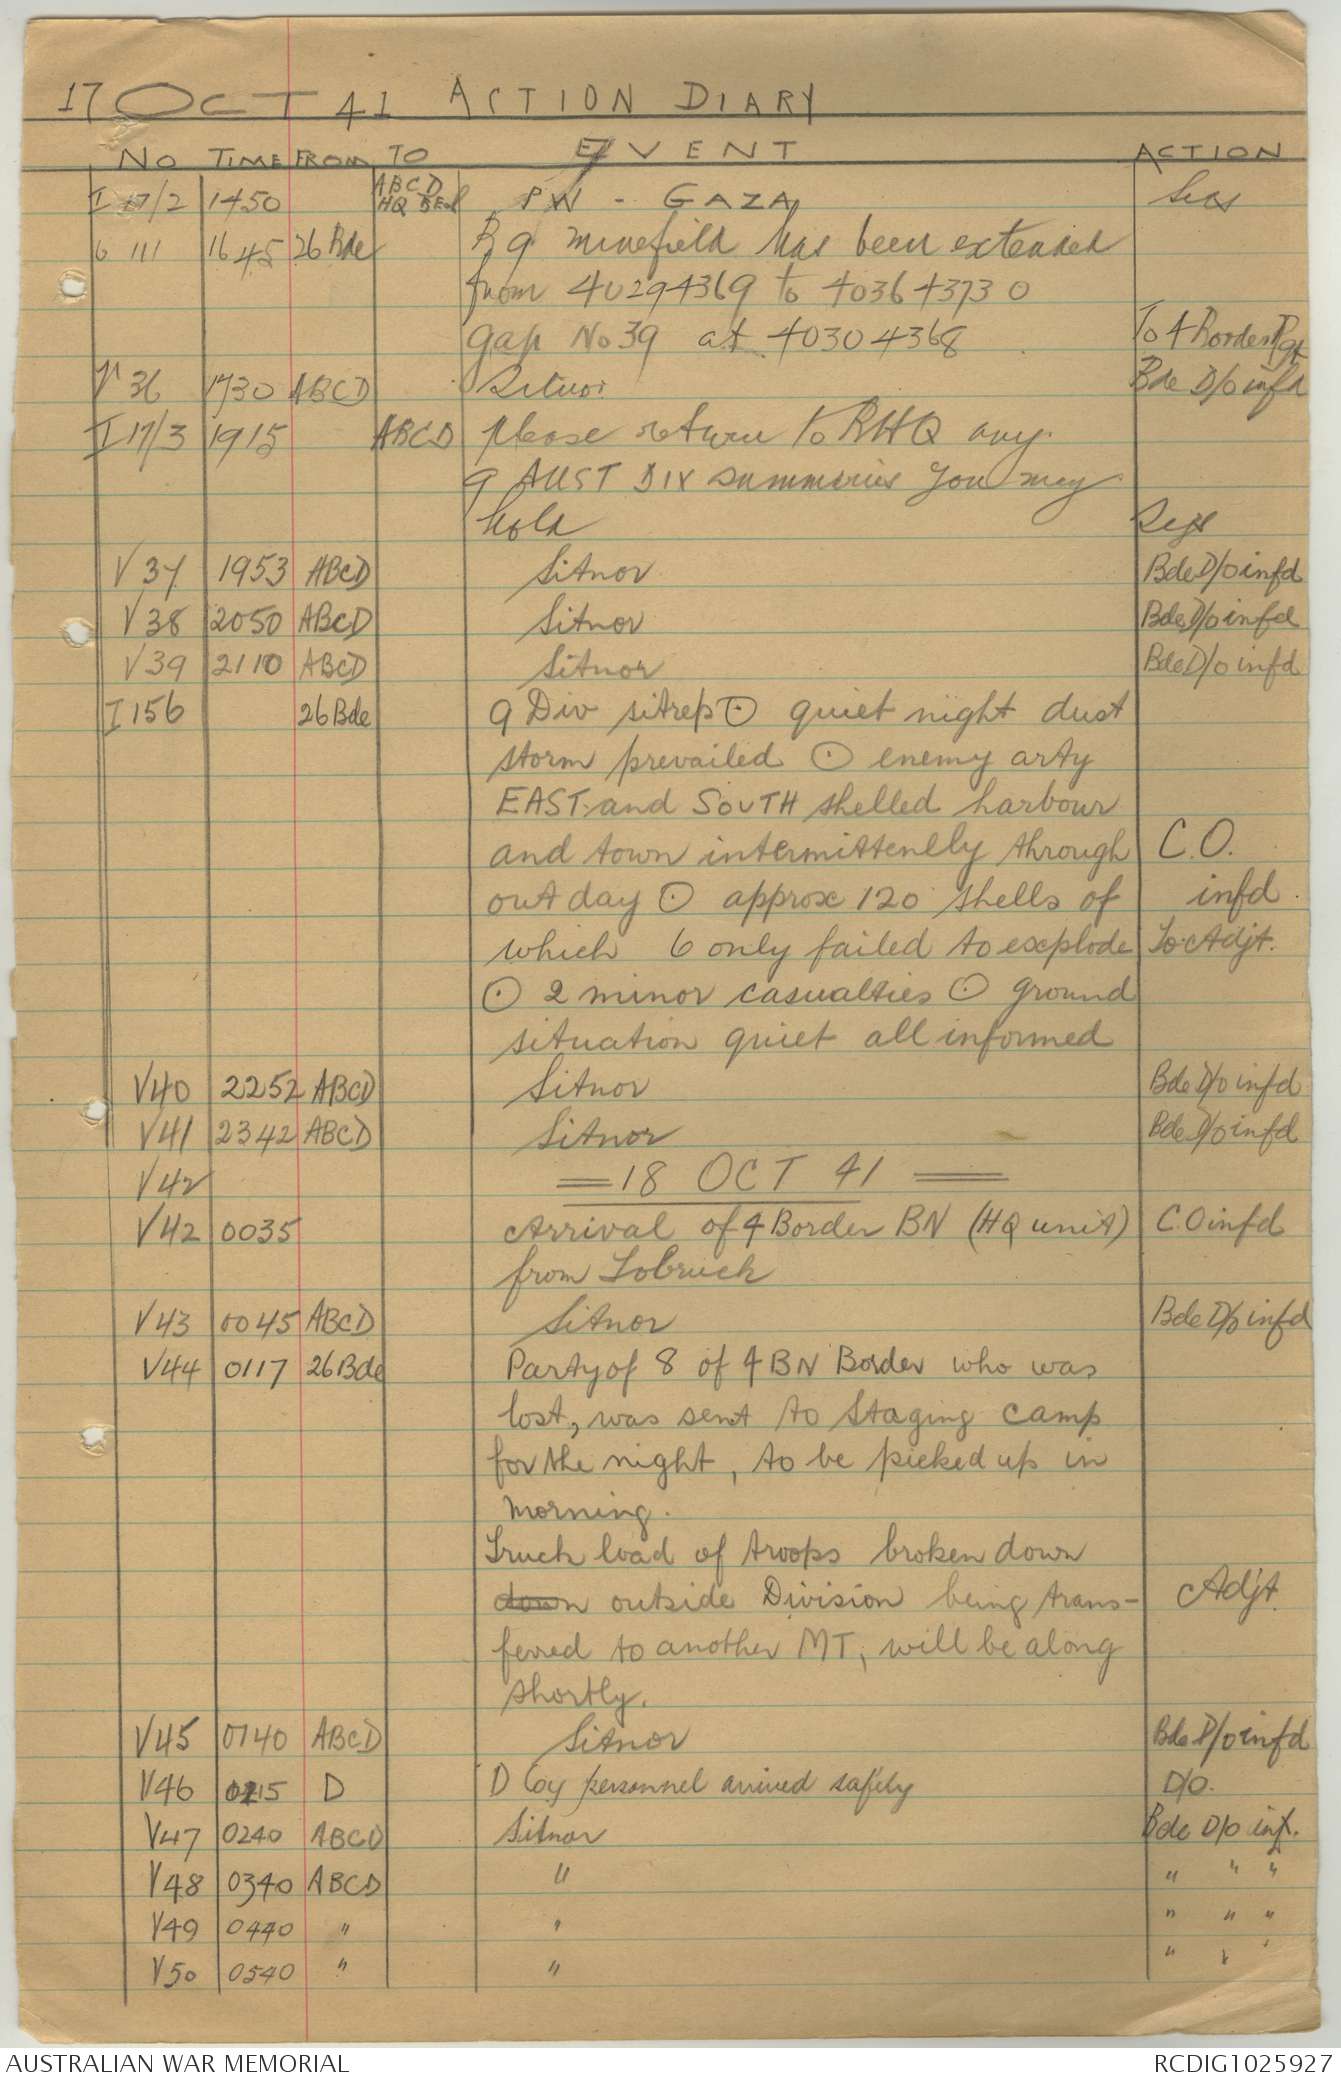 17 OCT 41 ACTION DIARY
NO TIME FROM TO EVENT ACTION
I 17/2 1450 ABCD HQ PW - GAZA Sigs
6 111 1645 26 Bde B 9 minefield has been extended
from 40294369 to 40364373 0
gap No 39 at 40304368 To 4 Border Rgt
V 36 1730 ABCD Sitnor Bde D/o infd
I 17/3 1915 ABCD please return to RHQ any
9 AUST DIV summaries you may
hold Sigs
V 37 1953 ABCD Sitnor Bde D/o infd
V 38 2050 ABCD Sitnor Bde D/o infd
V 39 2110 ABCD Sitnor Bde D/o infd
I 156 26 Bde 9 Div sitrep ⊙ quiet night dust
storm prevailed ⊙ enemy arty
EAST and SOUTH shelled harbour
and town intermittenlly through C.O.
out day ⊙ approx 120 shells of infd.
which 6 only failed to explode To Adjt.
⊙ 2 minor casualties ⊙ ground
situation quiet all informed
V40 2252 ABCD Sitnor Bde D/o infd
V41 2342 ABCD Sitnor Bde D/o infd
V42 = 18 OCT 41 =
V42 0035 Arrival of 4 Border BN (HQ unit) C.O infd
from Tobruck
V43 0045 ABCD Sitnor Bde D/o infd
V44 0117 26 Bde Party of 8 of 4 BN Border who was
lost, was sent to staging camp
for the night, to be picked up in
morning.
Truck load of troops broken down
down outside Division being trans- Adjt.
ferred to another MT, will be along
shortly.
V45 0140 ABCD Sitnor Bde D/o infd
V46 0215 D D Coy personnel arrived safely D/O.
V47 0240 ABCD Sitnor Bde D/o inf.
V48 0340 ABCD " " " "
V49 0440 " " " " "
V50 0540 " " " " "
AUSTRALIAN WAR MEMORIAL RCDIG1025927